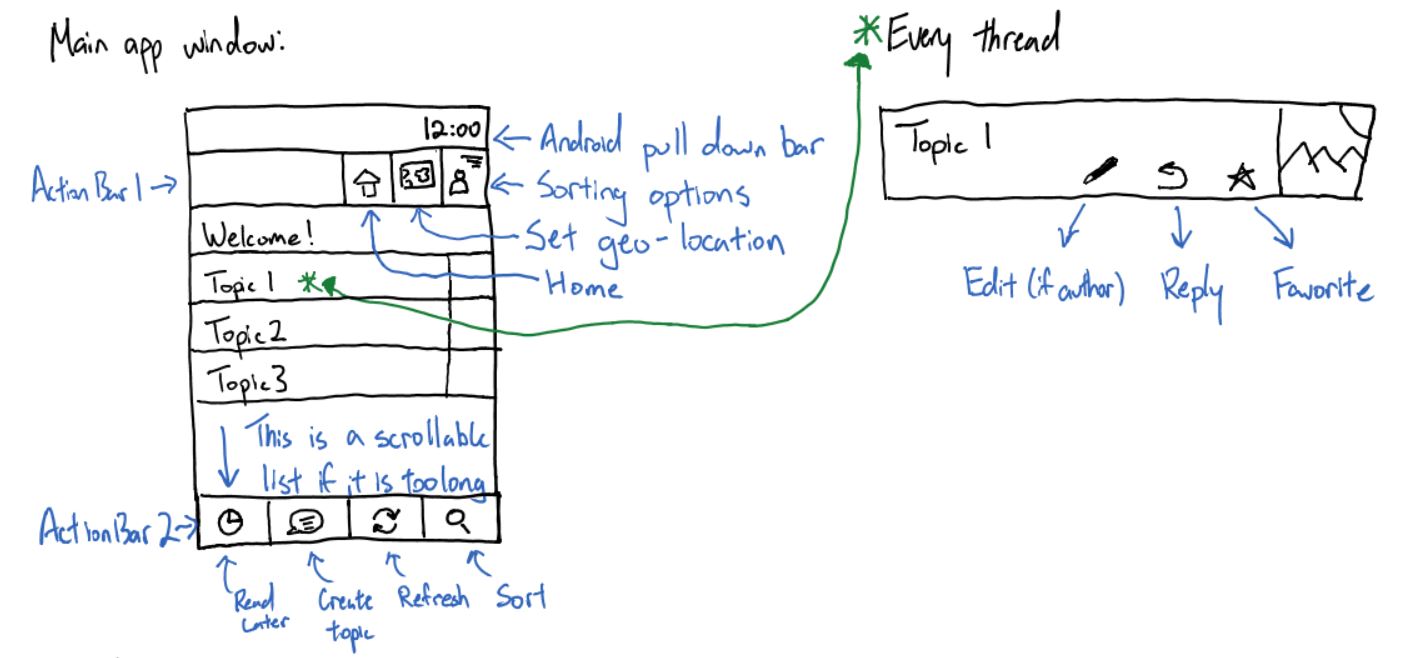 Main app window:
* Every thread
12:00
Android pull down bar
ActionBar 1
Sorting options
Welcome!
Set geo-location
Topic 1 *
Home
Topic 2
Topic 3
This is a scrollable
list if it is too long
ActionBar 2
Read
Later
Create
topic
Refresh
Sort
Topic 1
Edit (if author)
Reply
Favorite